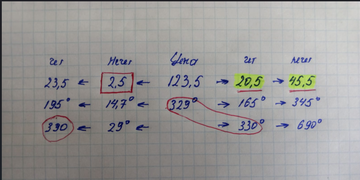 чет Нечет Цена чет нечет
23,5 ← 2,5 ← 123,5 → 20,5 → 45,5
195° ← 14,7° ← 329° → 165° → 345°
390 ← 29° ← → 330° → 690°